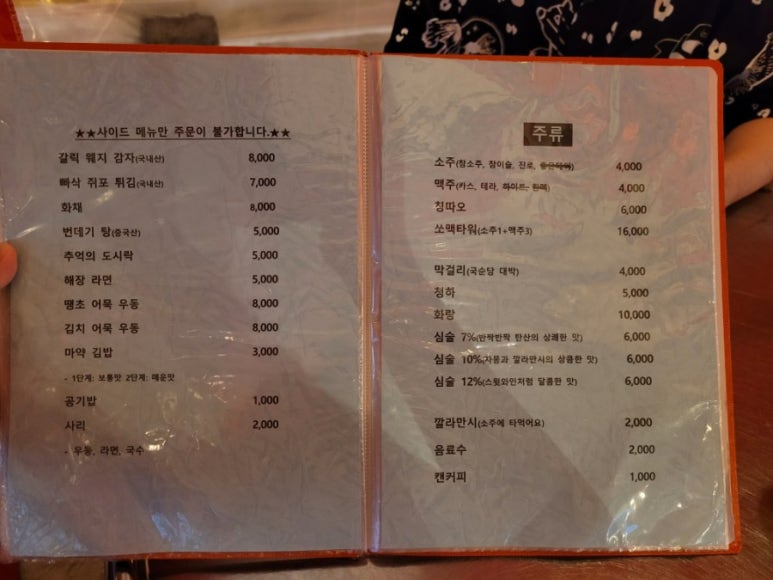 ★★사이드 메뉴만 주문이 불가합니다.★★
갈릭 웨지 감자(국내산) 8,000
빠삭 쥐포 튀김(국내산) 7,000
화채 8,000
번데기 탕(중국산) 5,000
추억의 도시락 5,000
해장 라면 5,000
땡초 어묵 우동 8,000
김치 어묵 우동 8,000
마약 김밥 3,000
- 1단계: 보통맛 2단계: 매운맛
공기밥 1,000
사리 2,000
- 우동, 라면, 국수
주류
소주(참소주, 참이슬, 진로, 좋은데이) 4,000
맥주(카스, 테라, 하이트, 한맥) 4,000
칭따오 6,000
쏘맥타워(소주1+맥주3) 16,000
막걸리(국순당 대박) 4,000
청하 5,000
화랑 10,000
심술 7%(반짝반짝 탄산의 상쾌한 맛) 6,000
심술 10%(자몽과 깔라만시의 상큼한 맛) 6,000
심술 12%(스윗와인처럼 달콤한 맛) 6,000
깔라만시(소주에 타먹어요) 2,000
음료수 2,000
캔커피 1,000